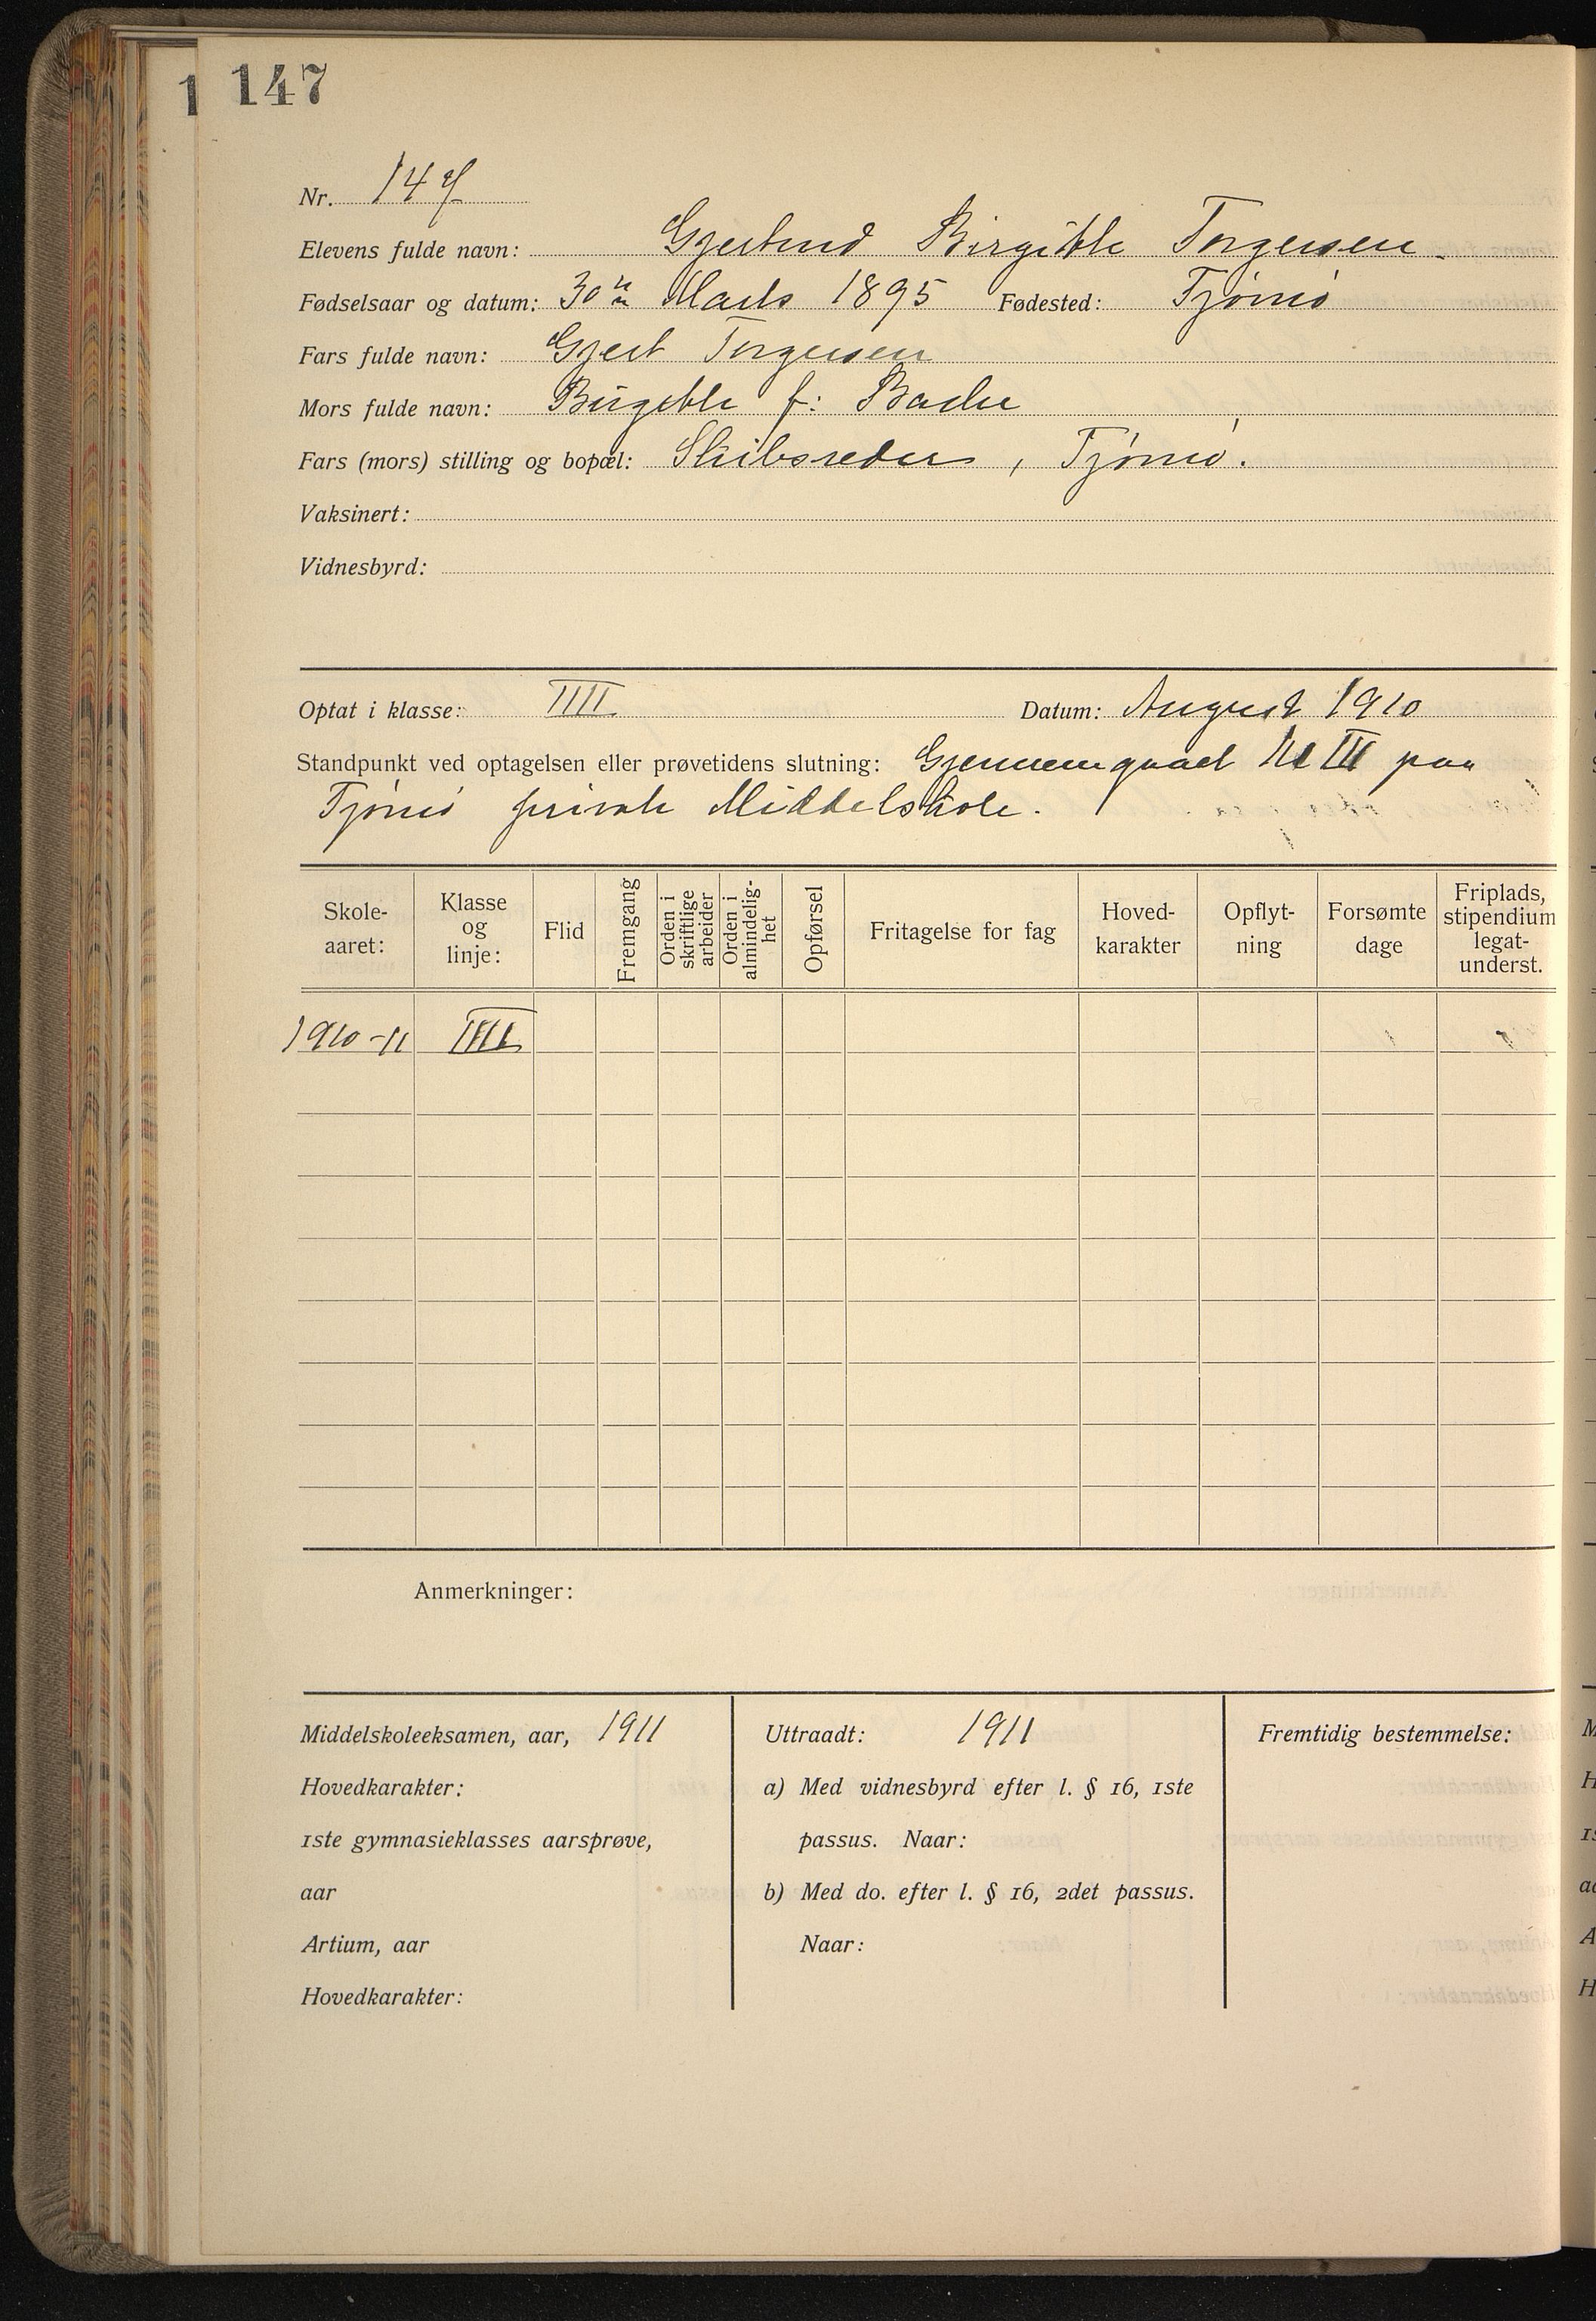 1 147
Nr. 147
Elevens fulde navn: Gjertrud Birgithe Torgersen.
Fødselsaar og datum: 30 Marts 1895 Fødested: Tjømø
Fars fulde navn: Gjert Torgersen
Mors fulde navn: Birgithe f: Bache
Fars (mors) stilling og bopæl: Skibsreder, Tjømø.
Vaksinert:
Vidnesbyrd:
Optat i klasse: IIII Datum: August 1910
Standpunkt ved optagelsen eller prøvetidens slutning: Gjennemgaaet III paa
Tjømø private Middelskole.
Skole-
aaret:
Klasse
og
linje:
Flid
Fremgang
Orden i
skriftlige
arbeider
Orden i
almindelig-
het
Opførsel
Fritagelse for fag
Hoved-
karakter
Opflyt-
ning
Forsømte
dage
Friplads,
stipendium
legat-
underst.
1910-11 IIII
Anmerkninger:
Middelskoleeksamen, aar, 1911
Hovedkarakter:
1ste gymnasieklasses aarsprøve,
aar
Artium, aar
Hovedkarakter:
Uttraadt: 1911
a) Med vidnesbyrd efter l. § 16, 1ste
passus. Naar:
b) Med do. efter l. § 16, 2det passus.
Naar:
Fremtidig bestemmelse: